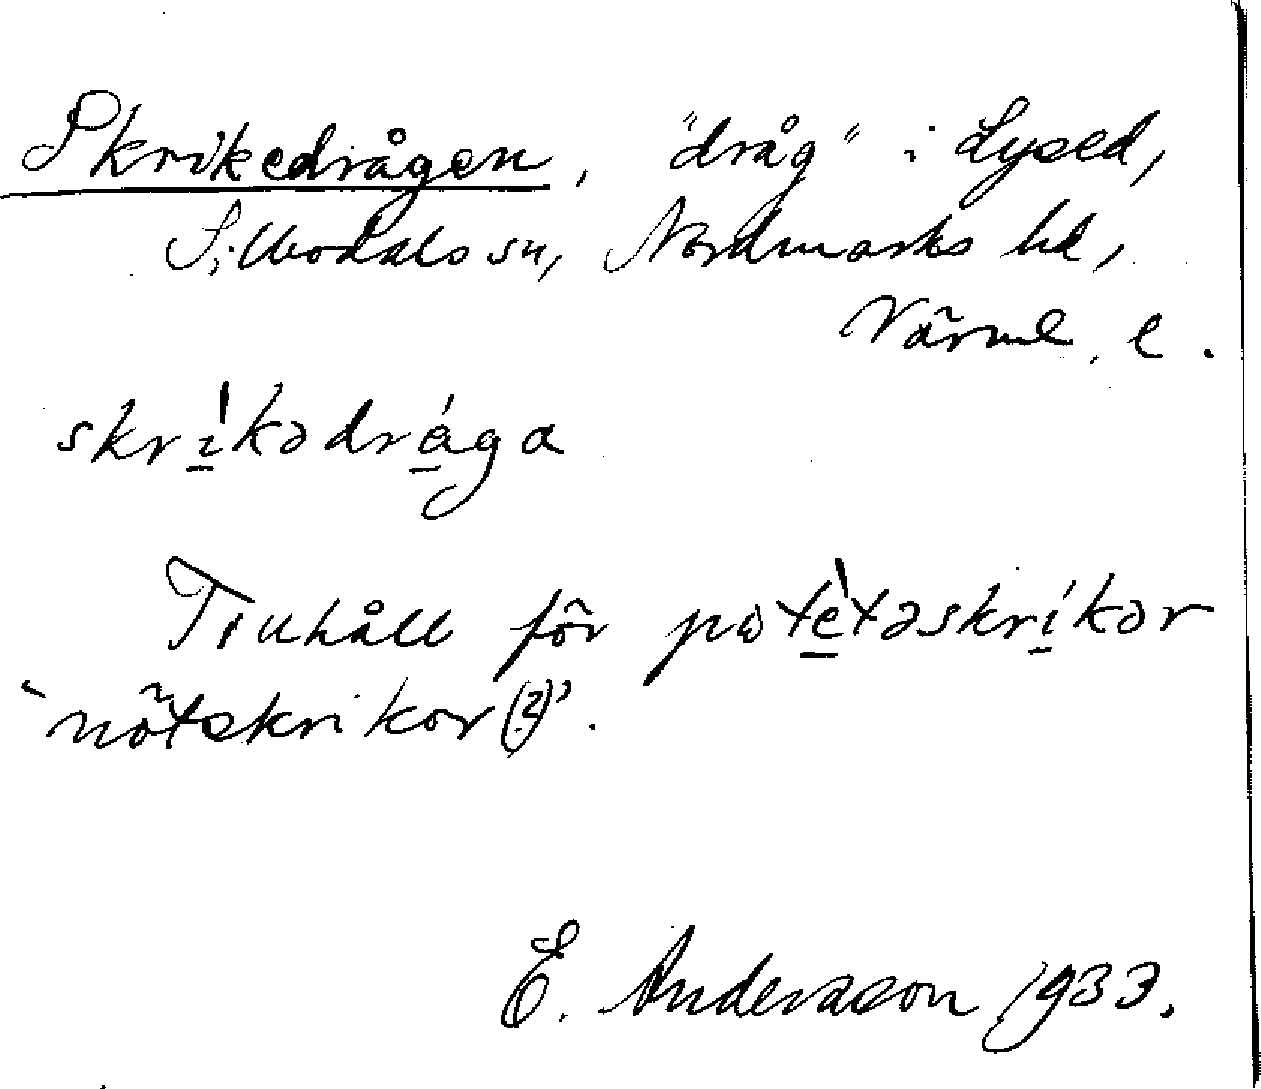 Skrikedrågen, "dråg" i Lysed,
Silbodals sn, Nordmarks hd,
Värml. l.
skrìkədrága
Tillhåll för potètəskríkər
'nötskrikor(?)'.
E. Andersson 1933.